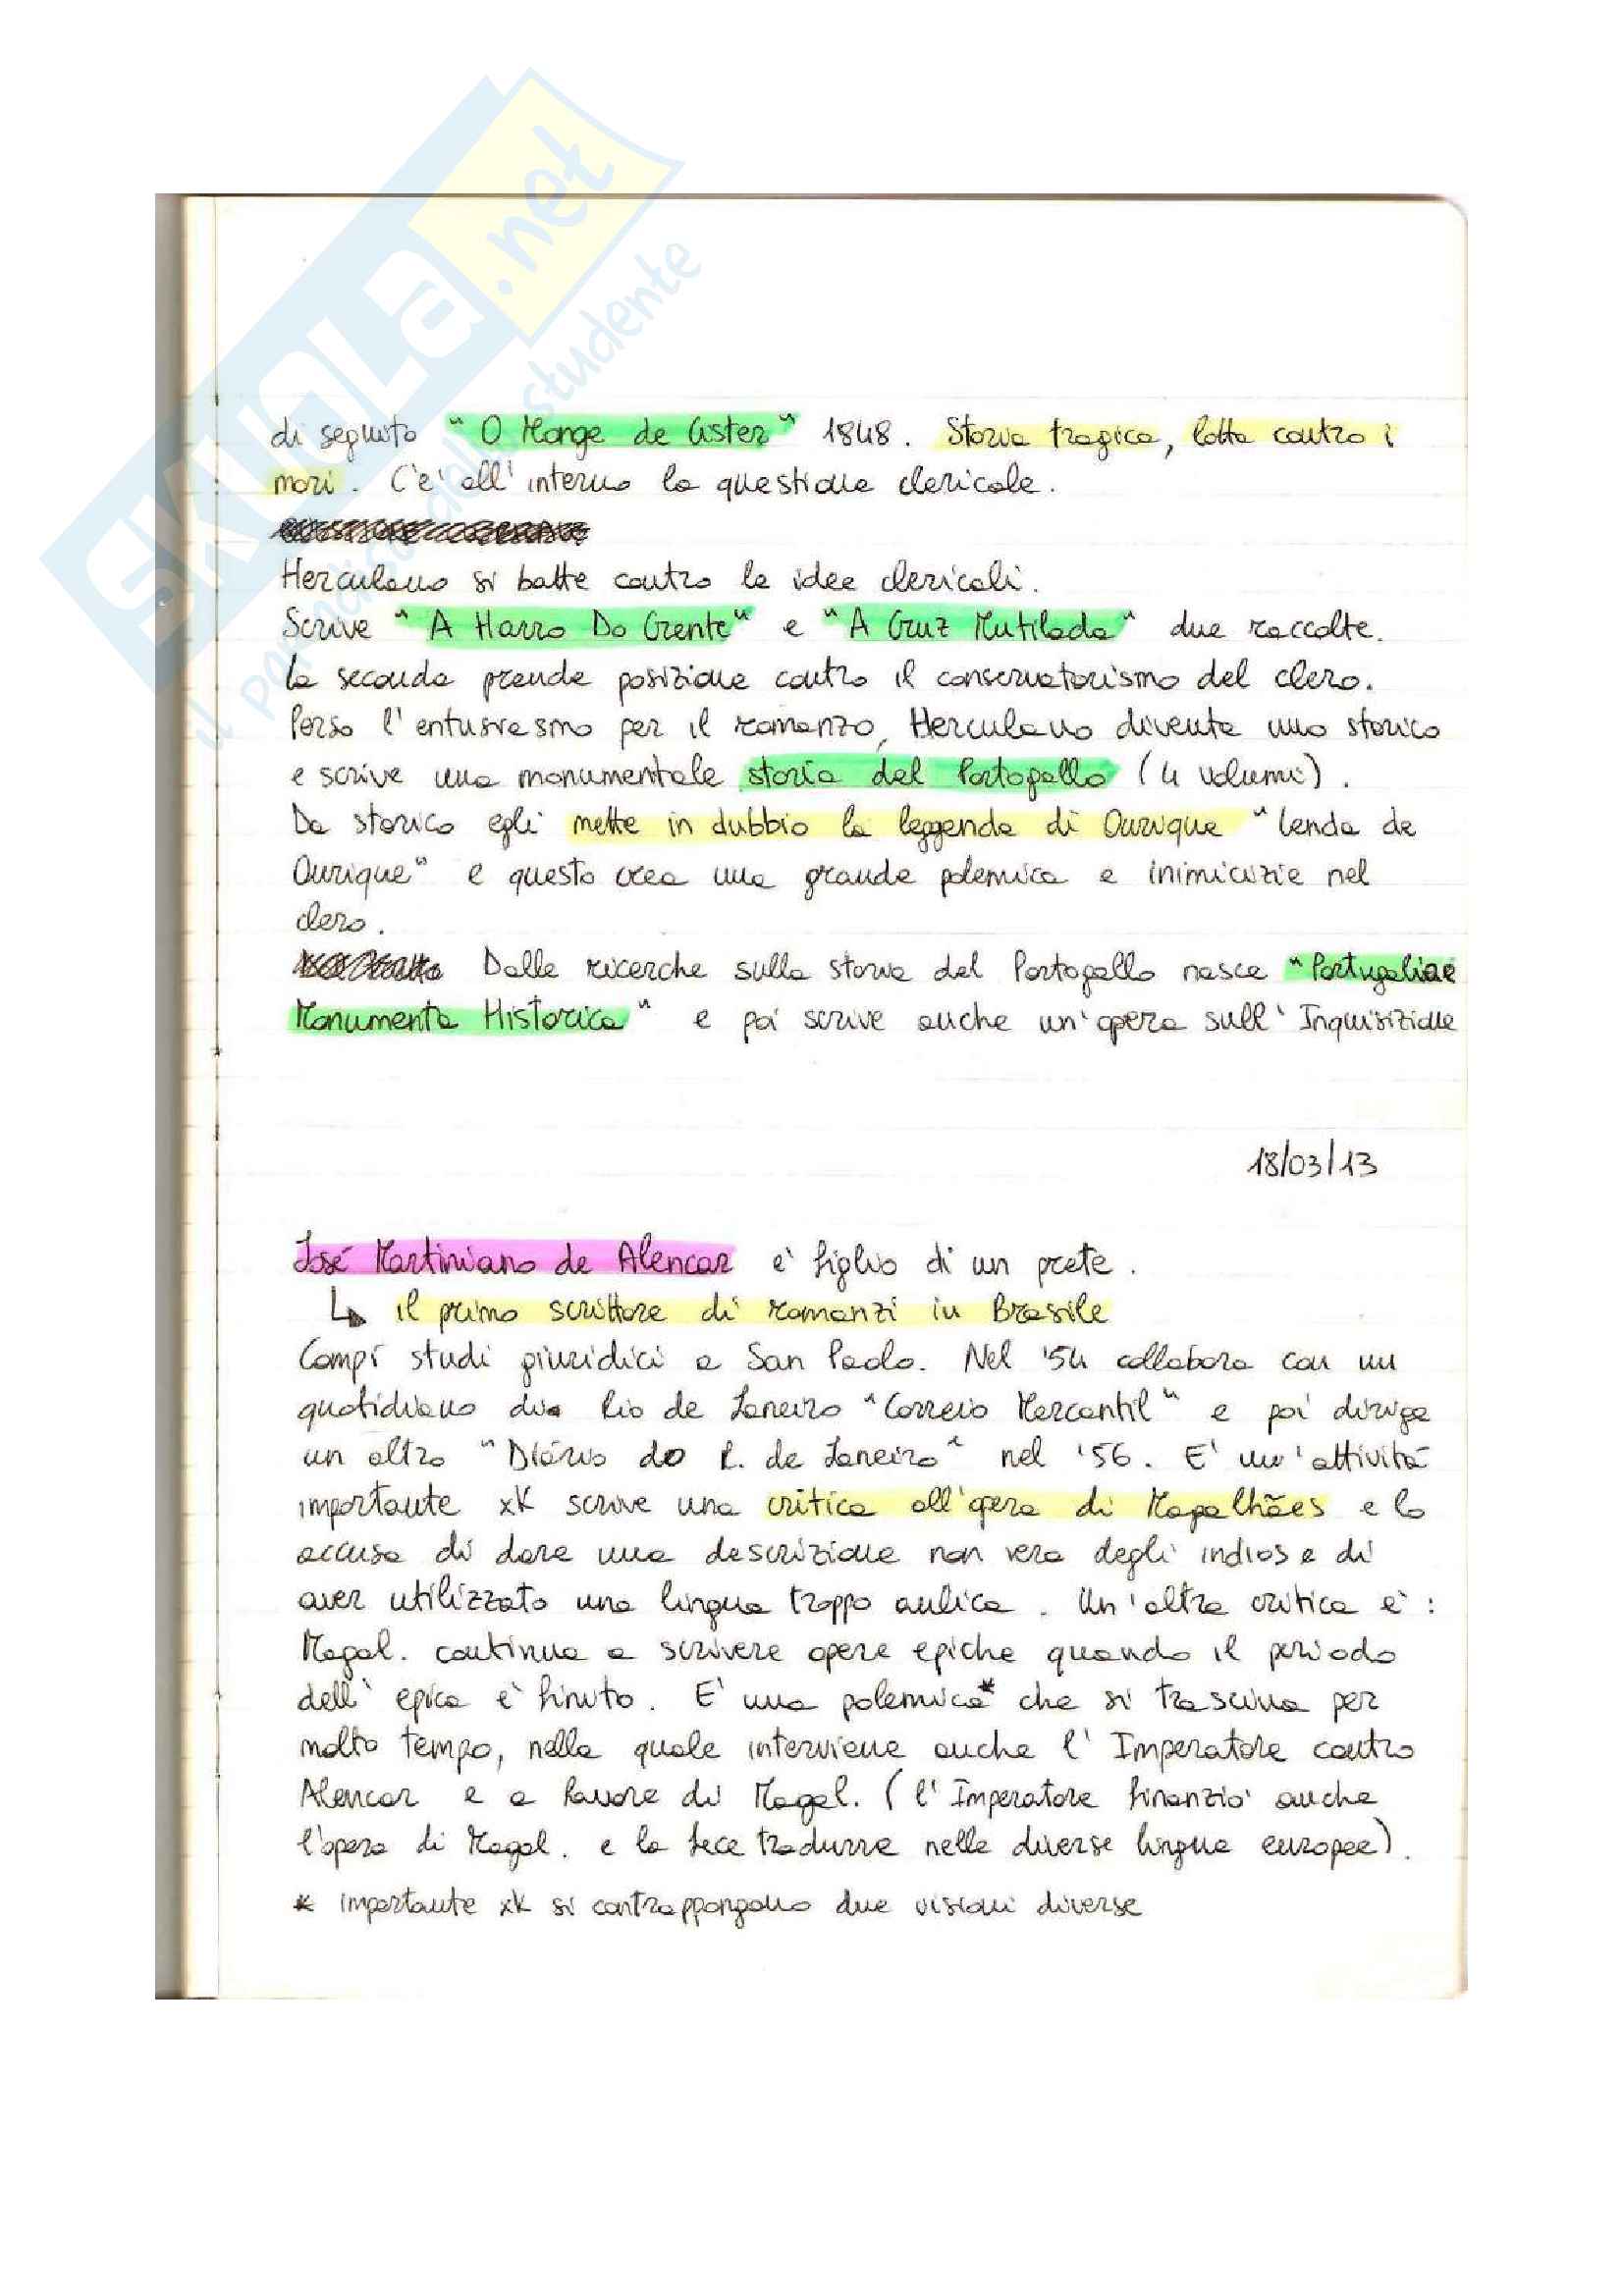 SKUOLA.net
il paradiso dello studente
di seguito "O Monge de Cister" 1848. Storia tragica, lotta contro i
mori. C'e' all'interno la questione clericale.
Herculano si batte contro le idee clericali.
Scrive "A Harro Do Crente" e "A Cruz Mutilada" due raccolte.
La seconda prende posizione contro il conservatorismo del clero.
Perso l'entusiasmo per il romanzo, Herculano diventa uno storico
e scrive una monumentale storia del Portogallo (4 volumi).
Da storico egli mette in dubbio la leggenda di Ourique "lenda de
Ourique" e questo crea una grande polemica e inimicizie nel
clero.
Dalle ricerche sulla storia del Portogallo nasce "Portugaliae
Monumenta Historica" e poi scrive anche un'opera sull'Inquisizione
18/03/13
José Martiniano de Alencar e' figlio di un prete.
↳ il primo scrittore di romanzi in Brasile
Compì studi giuridici a San Paolo. Nel '54 collabora con un
quotidiano di Rio de Janeiro "Correio Mercantil" e poi dirige
un altro "Diário do R. de Janeiro" nel '56. E' un'attività
importante xK scrive una critica all'opera di Magalhães e lo
accusa di dare una descrizione non vera degli indios e di
aver utilizzato una lingua troppo aulica. Un'altra critica e':
Magal. continua a scrivere opere epiche quando il periodo
dell'epica e' finito. E' una polemica* che si trascina per
molto tempo, nella quale interviene anche l'Imperatore contro
Alencar e a favore di Magal. (l'Imperatore finanziò anche
l'opera di Magal. e la fece tradurre nelle diverse lingue europee).
* importante xK si contrappongono due visioni diverse